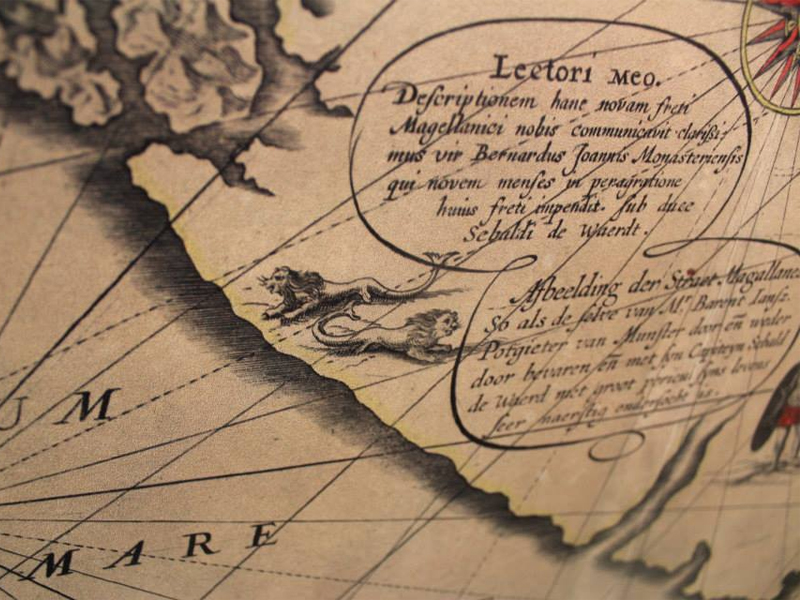 Lectori Meo.
Descriptionem hanc novam freti
Magellanici nobis communicavit clarißi-
mus vir Bernardus Joannis Monasteriensis
qui novem menses in peragratione
huius freti impendit. sub duce
Sebaldi de Waerdt.
Afbeelding der Straet Magallanes
So als de selve van Mr. Barent Jansz.
Potgieter van Munster door en weder
door bevaren en met syn Capiteyn Sebald
de Waerd met groot pericul syns levens
seer naerstig ondersocht is.
U M
MARE